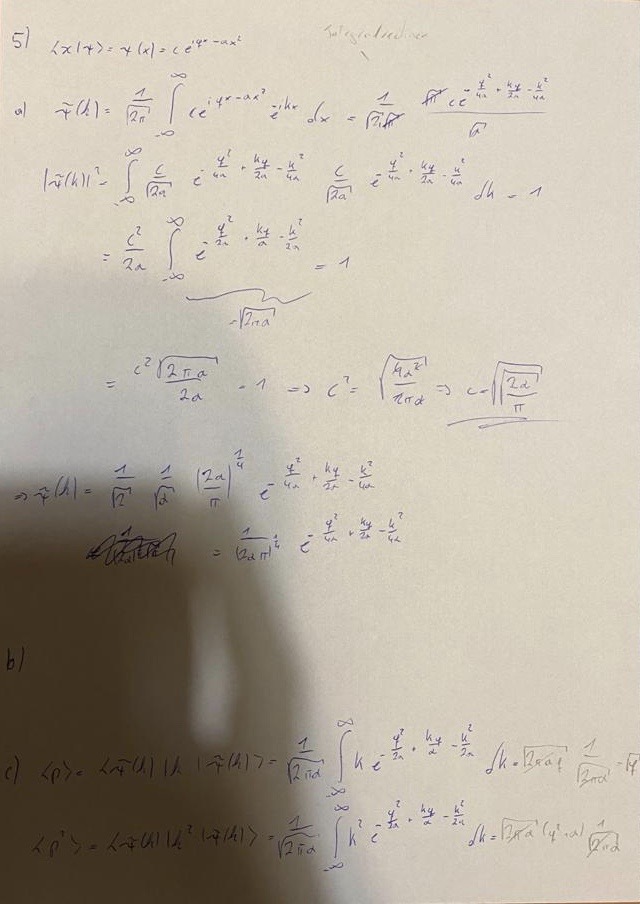 Integralrechner
5) <x|ψ> = ψ(x) = c e^{iφx - ax²}
a) ψ̃(k) = 1/√(2π) ∫_{-∞}^{∞} c e^{iφx - ax²} e^{-ikx} dx = 1/√(2π) √π c e^{-φ²/4a + kφ/2a - k²/4a} / √a
|ψ̃(k)|² = ∫_{-∞}^{∞} c/√(2a) e^{-φ²/4a + kφ/2a - k²/4a} c/√(2a) e^{-φ²/4a + kφ/2a - k²/4a} dk = 1
= c²/2a ∫_{-∞}^{∞} e^{-φ²/2a + kφ/a - k²/2a} = 1
= √(2πa)
= c² √(2πa)/2a = 1 => c² = √(4a²/2πa) => c = √(√(2a/π))
=> ψ̃(k) = 1/√2 1/√a (2a/π)^{1/4} e^{-φ²/4a + kφ/2a - k²/4a}
= 1/(2aπ)^{1/4} e^{-φ²/4a + kφ/2a - k²/4a}
b)
c) <p> = <ψ̃(k)|k|ψ̃(k)> = 1/√(2πa) ∫_{-∞}^{∞} k e^{-φ²/2a + kφ/a - k²/2a} dk = √(2πa) φ 1/√(2πa)
<p²> = <ψ̃(k)|k²|ψ̃(k)> = 1/√(2πa) ∫_{-∞}^{∞} k² e^{-φ²/2a + kφ/a - k²/2a} dk = √(2πa) (φ²+a) 1/√(2πa)